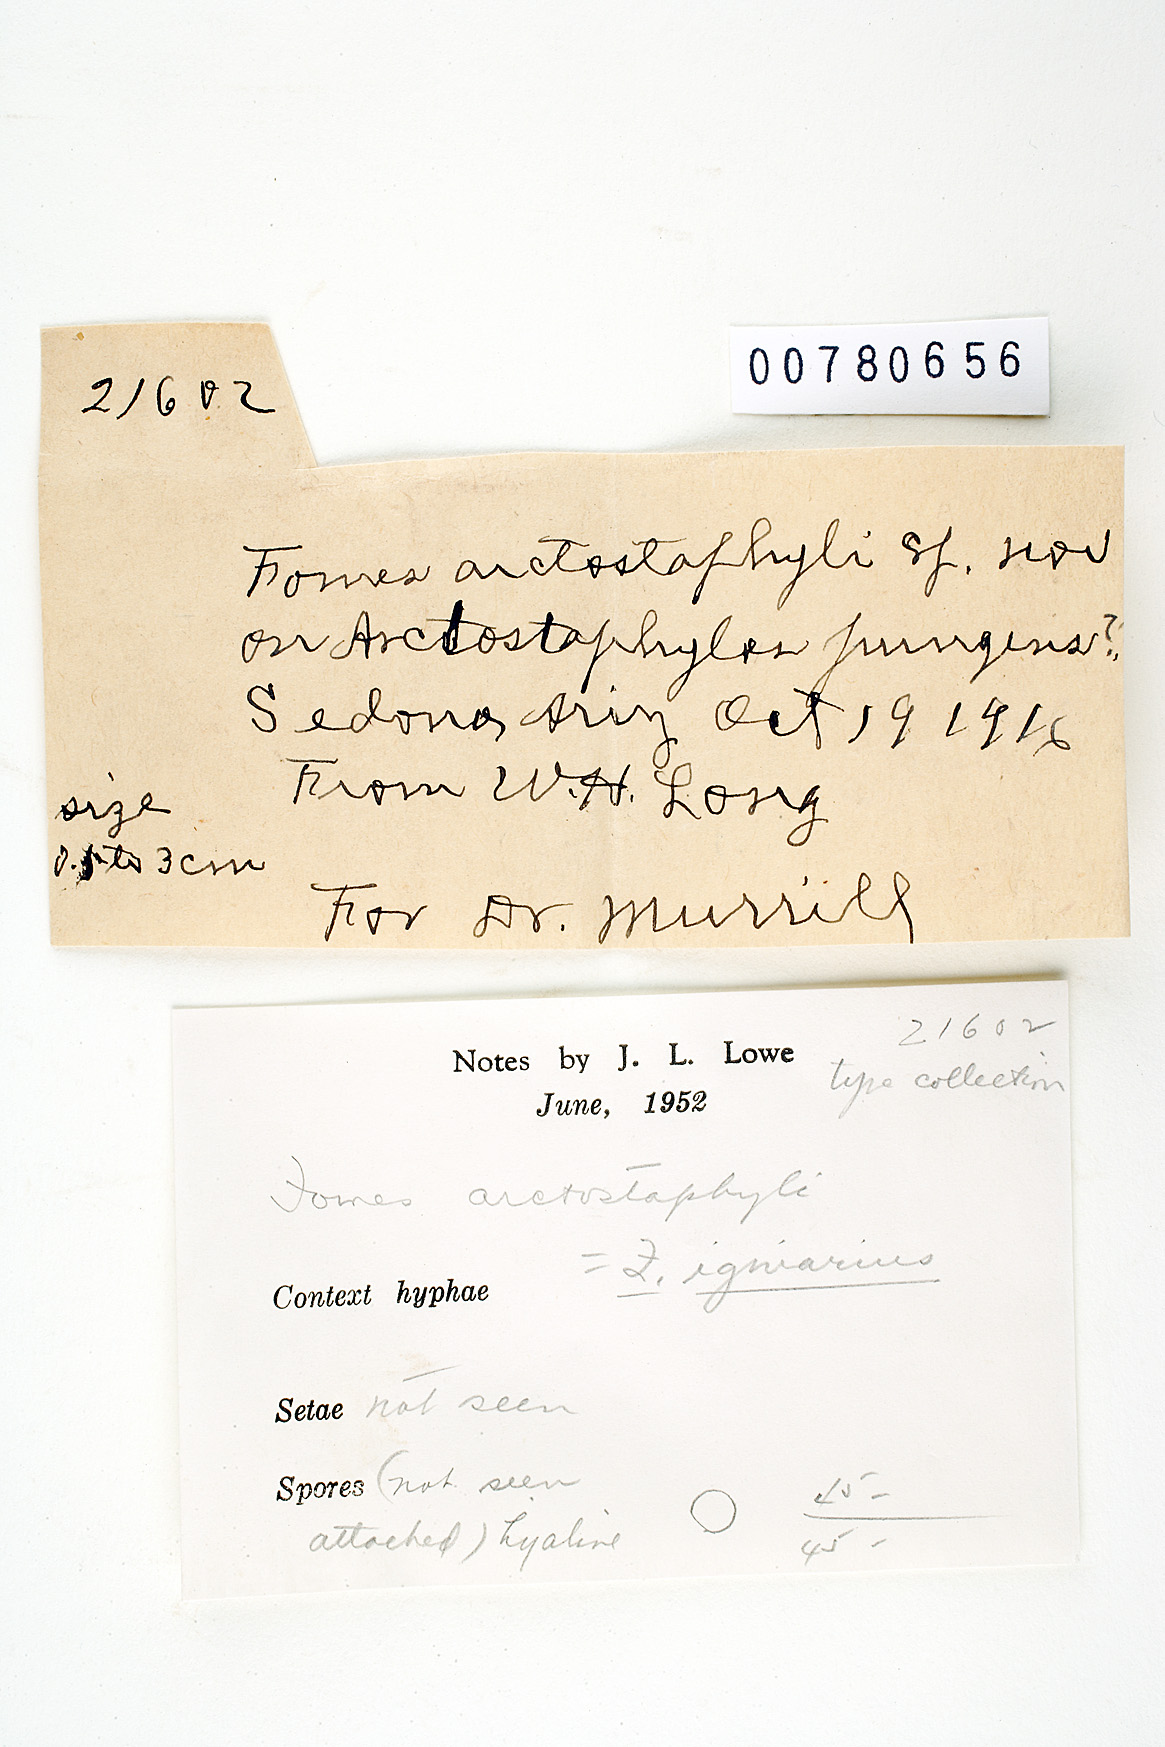 21602
00780656
Fomes arctostaphyli sp. nov
on Arctostaphylos pungens?
Sedona, Ariz Oct 19 1916
From W.H. Long
size
0.5 to 3 cm
For Dr. Murrill
21602
type collection
Notes by J. L. Lowe
June, 1952
Fomes arctostaphyli
= F. igniarius
Context hyphae
Setae not seen
Spores (not seen
attached) hyaline
45 -